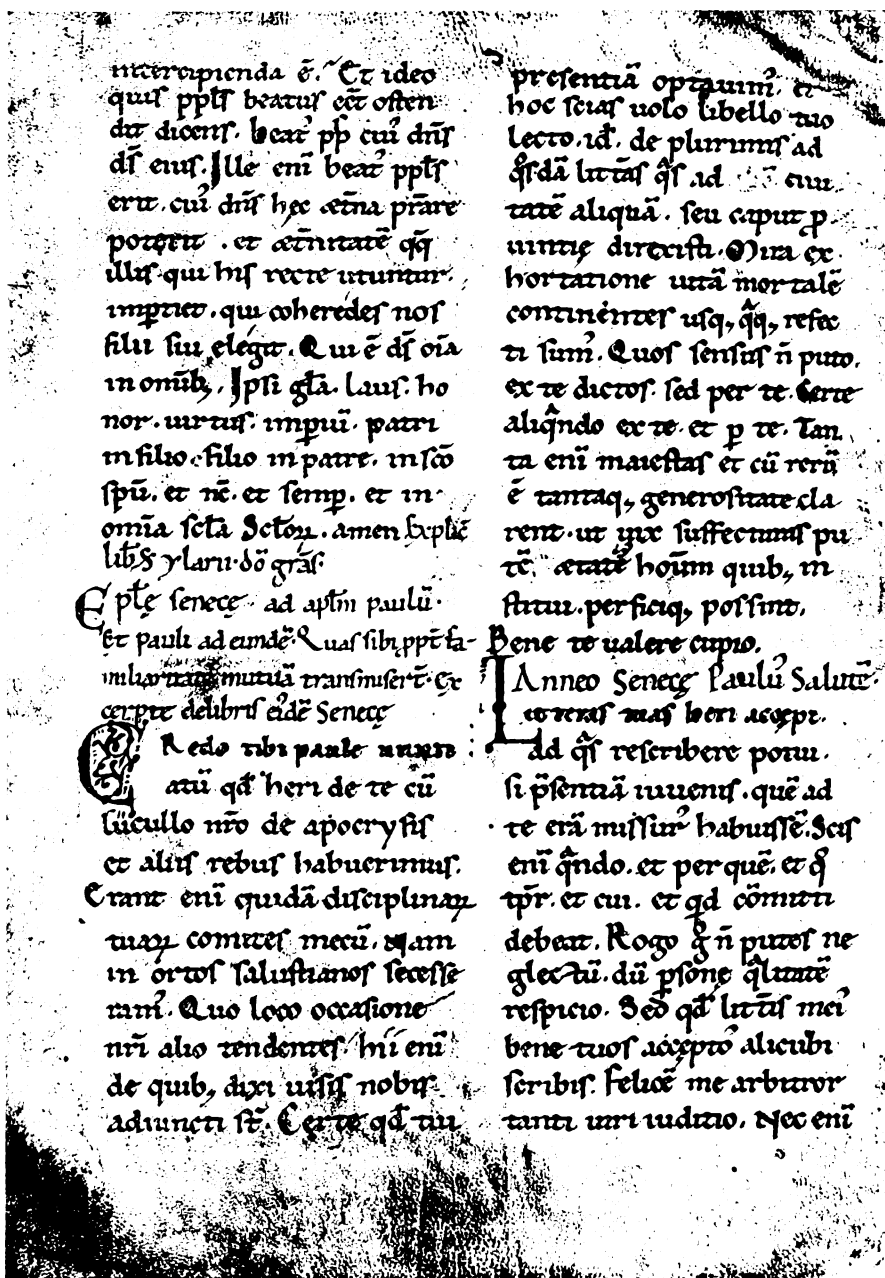 intercipienda ē. Et ideo
quis ppl̄s beatus eēt osten
dit dicens. beat᷒ pp̄ cui᷒ dn̄s
ds̄ eius. Ille enī beat᷒ ppl̄s
erit. cui᷒ dn̄s hęc æt̄na p̄rare
poterit. et æt̄nitatē qq̄
illis qui his recte utuntur.
imꝑtiet. qui coheredes nos
filii sui elegit. Qui ē ds̄ oīa
in omīb; Ipsi gl̄a. laus. ho
nor. uirtus. imꝑiū. patri
in filio. filio in patre. in sc̄o
spū. et nc̄. et semꝑ. et in
omīa scl̄a scl̄oꝝ. amen Explic̄
lib̄ S ylarii. dō gr̄as.
Epl̄ę senecę ad apl̄m paulū.
Et pauli ad eundē. Quas sibi ꝓpt̄ fa-
miliaritatē mutuā transmiser̄t. Ex
cerpte de libris ei᷒dē Senecę
CRedo tibi paule nunti
atū qd̄ heri de te cū
lucullo nr̄o de apocryfis
et aliis rebus habuerimus.
Erant enī quidā disciplinaꝝ
tuaꝝ comites mecū. Nam
in ortos salustianos secesse
ram᷒. Quo loco occasione
nr̄i alio tendentes hii enī
de quib; dixi uisis nobis
adiuncti st̄. Certe qd̄ tui
presentiā optauim᷒. et
hoc scias uolo libello tuo
lecto. id̄. de plurimis ad
qͦsdā litt̄as qͣs ad ciui
tatē aliquā. seu caput ꝓ
uintię direxisti. Mira ex
hortatione uitā mortalē
continentes usq; qͣq; refec
ti sum᷒. Quos sensus n̄ puto.
ex te dictos. sed per te. Certe
aliqͣndo ex te et ꝑ te. Tan
ta enī maiestas et cū rerū
ē tantaq; generositate cla
rent. ut uix suffecturas pu
tē. ætatē hoīum quib; in
stitui. perficiq; possint.
Bene te ualere cupio.
Anneo Senecę Paulu᷒ Salutē.
Litteras tuas heri accepi.
ad qͣs rescribere potui.
si p̄sentiā iuuenis. quē ad
te erā missur᷒ habuissē. Scis
enī qͣndo. et per quē. et qͦ
tp̄r. et cui. et qͥd cōmitti
debeat. Rogo gͦ n̄ putes ne
glectū. dū ꝑsonę qͣlitatē
respicio. Sed qd̄ litt̄is mei᷒
bene tuos accepto᷒ alicubi
scribis. felicē me arbitror
tanti uiri iuditio. Nec enī